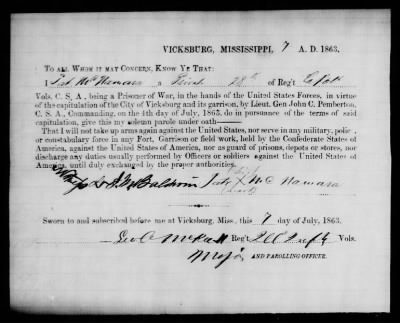 VICKSBURG, MISSISSIPPI, 7 A. D. 1863.
TO ALL WHOM IT MAY CONCERN, KNOW YE THAT:
I Pat McNamara a Private of Reg't
Vols. C. S. A., being a Prisoner of War, in the hands of the United States Forces, in virtue
of the capitulation of the City of Vicksburg and its garrison, by Lieut. Gen John C. Pemberton,
C. S. A., Commanding, on the 4th day of July, 1863, do in pursuance of the terms of said
capitulation, give this my solemn parole under oath——
That I will not take up arms again against the United States, nor serve in any military, police
or constabulary force in any Fort, Garrison or field work, held by the Confederate States of
America, against the United States of America, nor as guard of prisons, depots or stores, nor
discharge any duties usually performed by Officers or soldiers against the United States of
America, until duly exchanged by the proper authorities.
Baldwin Pat his X mark McNamara
Sworn to and subscribed before me at Vicksburg, Miss., this 7 day of July, 1863.
Geo C McKee Reg't Ill Vols.
Major AND PAROLLING OFFICER.